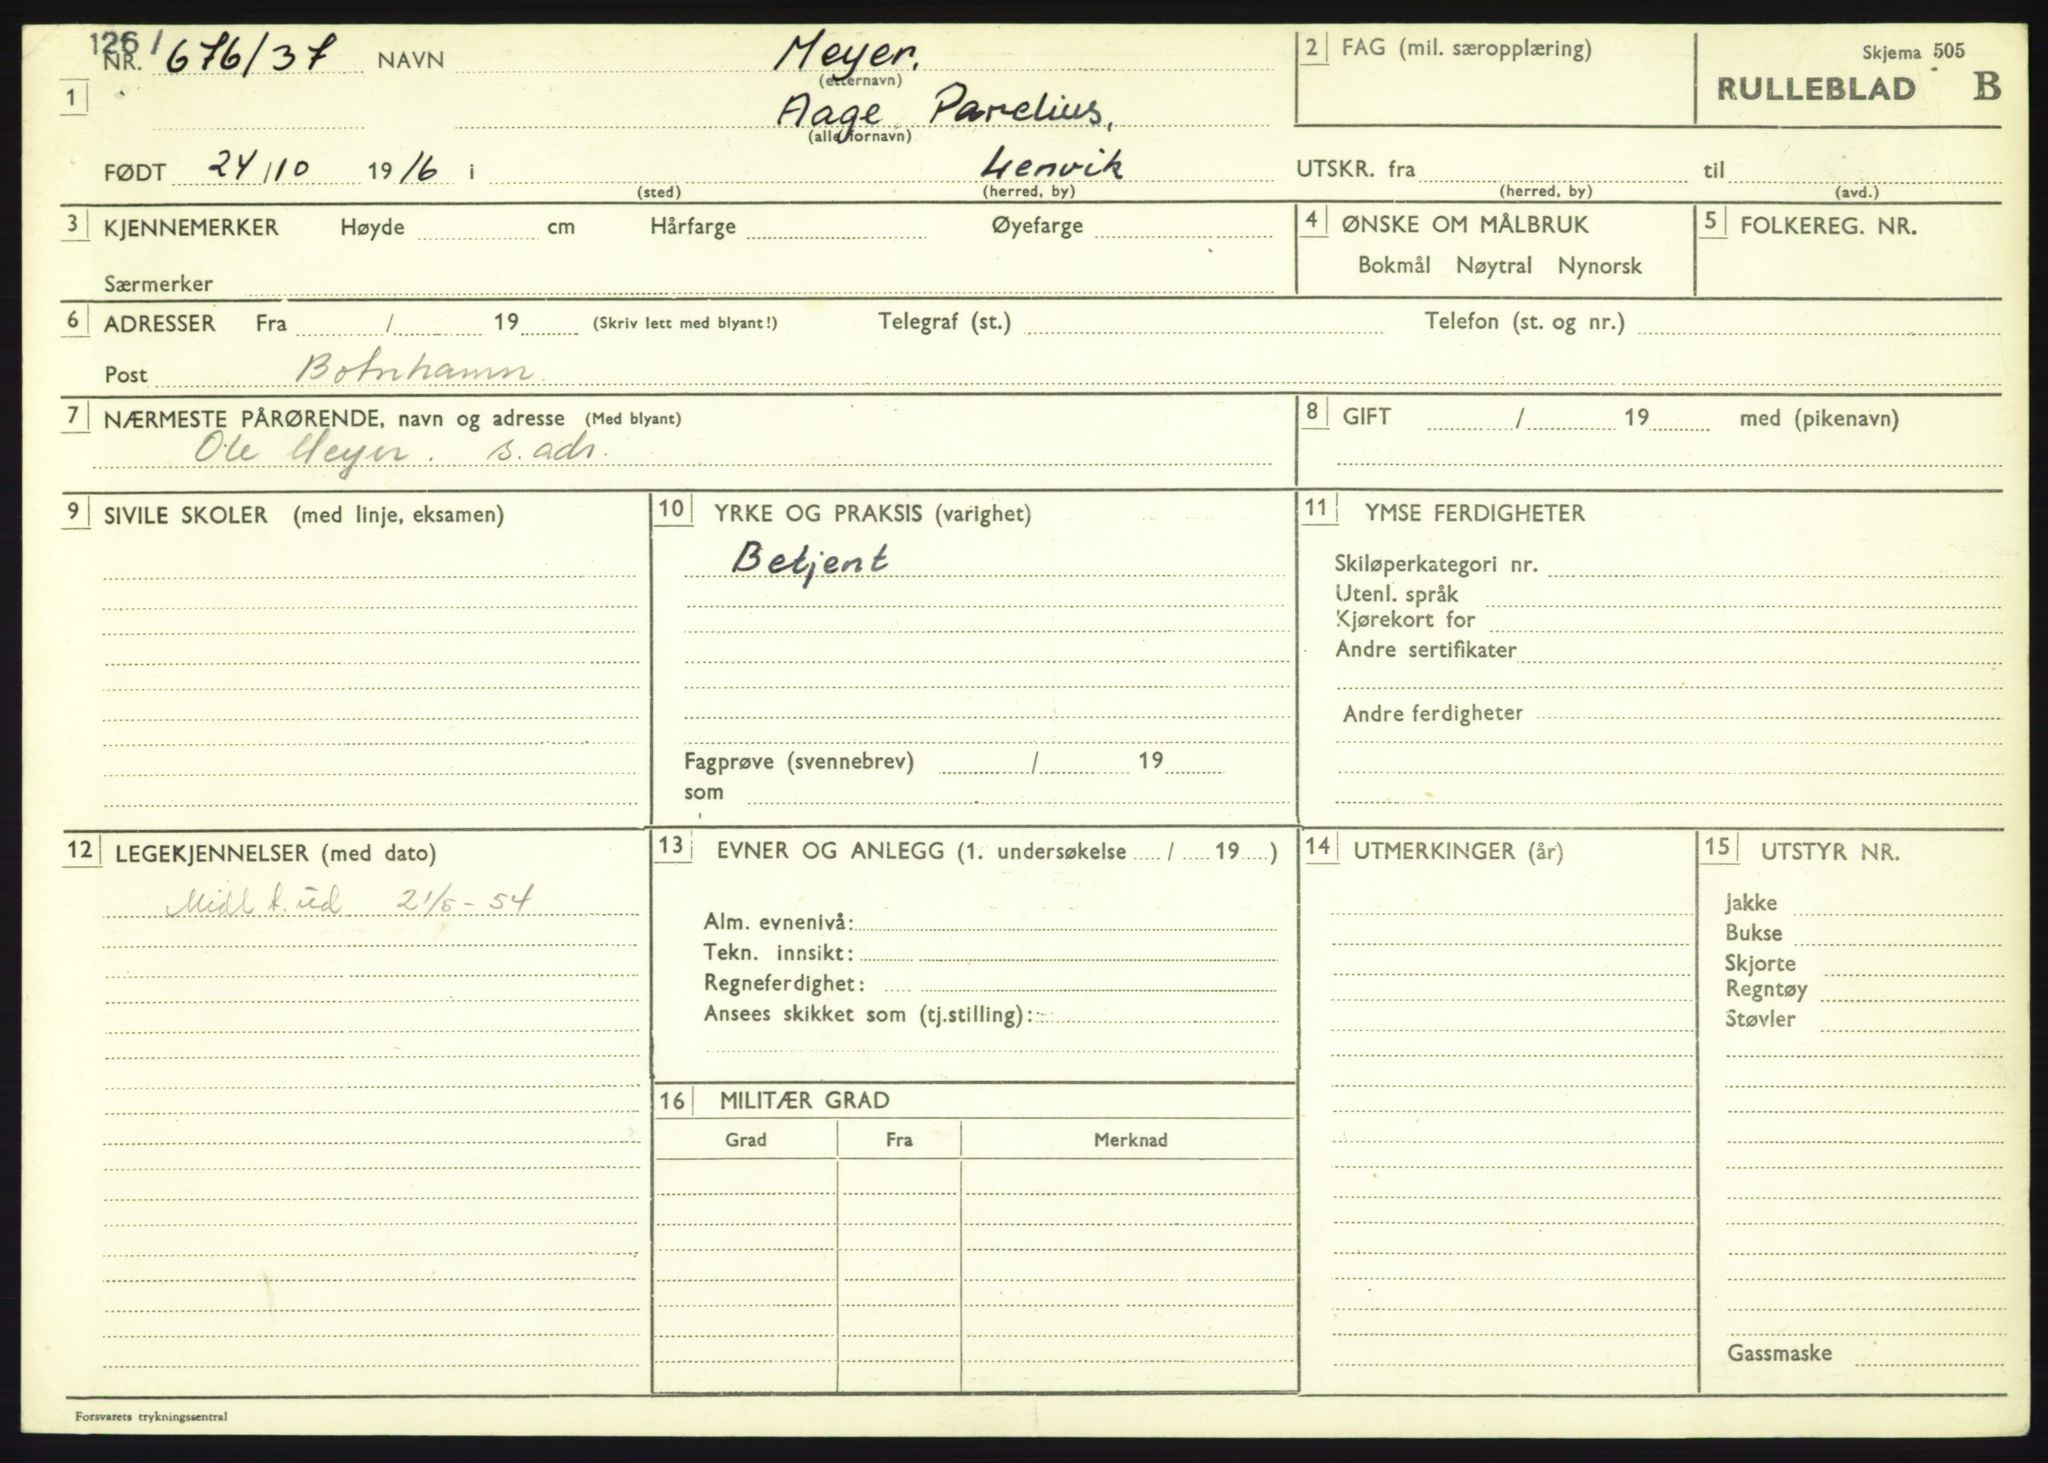 126/
NR. 676/37 NAVN Meyer.
(etternavn)
1
Aage Parelius,
(alle fornavn)
FØDT 24/10 1916 i Lenvik
(sted) (herred, by)
2 FAG (mil. særopplæring)
Skjema 505
RULLEBLAD B
UTSKR. fra til
(herred, by) (avd.)
3 KJENNEMERKER Høyde cm Hårfarge Øyefarge
Særmerker
4 ØNSKE OM MÅLBRUK
Bokmål Nøytral Nynorsk
5 FOLKEREG. NR.
6 ADRESSER Fra / 19 (Skriv lett med blyant!) Telegraf (st.) Telefon (st. og nr.)
Post Botnhamn
7 NÆRMESTE PÅRØRENDE, navn og adresse (Med blyant)
Ole Meyer. s. adr.
8 GIFT / 19 med (pikenavn)
9 SIVILE SKOLER (med linje, eksamen)
10 YRKE OG PRAKSIS (varighet)
Betjent
Fagprøve (svennebrev) / 19
som
11 YMSE FERDIGHETER
Skiløperkategori nr.
Utenl. språk
Kjørekort for
Andre sertifikater
Andre ferdigheter
12 LEGEKJENNELSER (med dato)
Midl 21/5-54
13 EVNER OG ANLEGG (1. undersøkelse / 19 )
Alm. evnenivå:
Tekn. innsikt:
Regneferdighet:
Ansees skikket som (tj.stilling):
14 UTMERKINGER (år)
15 UTSTYR NR.
Jakke
Bukse
Skjorte
Regntøy
Støvler
Gassmaske
16 MILITÆR GRAD
Grad Fra Merknad
Forsvarets trykningssentral